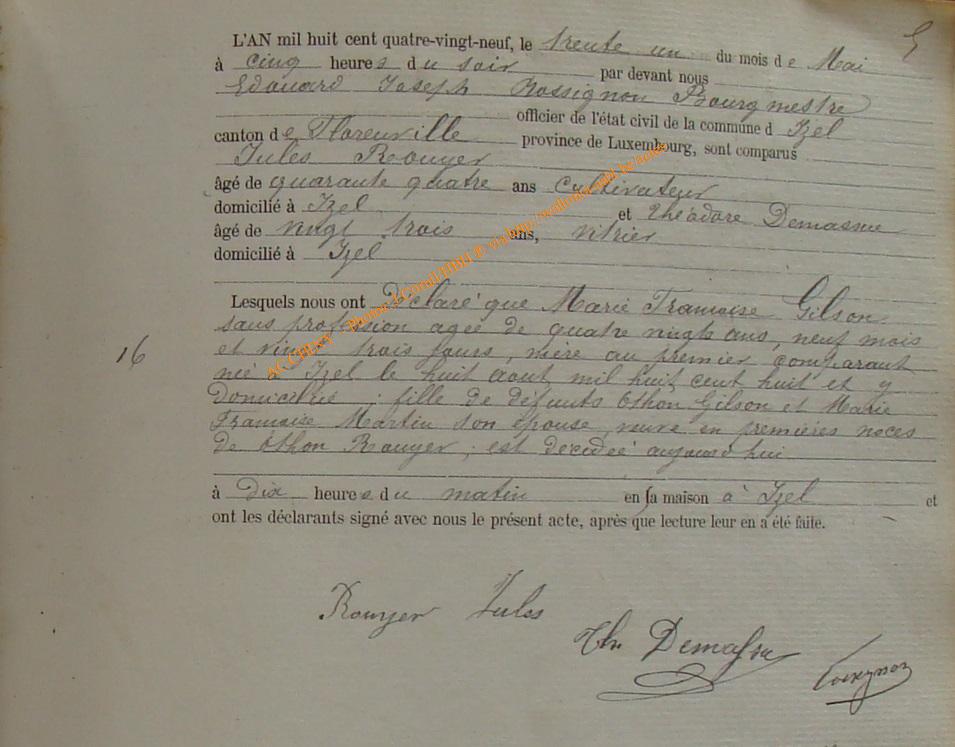 L'AN mil huit cent quatre-vingt-neuf, le trente un du mois de Mai
à cinq heures du soir par devant nous
Edouard Joseph Rossignon Bourgmestre
officier de l'état civil de la commune d Izel
canton de Florenville province de Luxembourg, sont comparus
Jules Rouyer
âgé de quarante quatre ans cultivateur
domicilié à Izel et Théodore Demasue
âgé de vingt trois ans, vitrier
domicilié à Izel
Lesquels nous ont Déclaré que Marie Françoise Gilson
sans profession agée de quatre vingts ans, neuf mois
16
et vingt trois jours, mère au premier comparant
née à Izel le huit aout mil huit cent huit et y
Domiciliée ; fille de défunts Othon Gilson et Marie
Françoise Martin son épouse, veuve en premières noces
de Othon Rouyer ; est décédée aujourd'hui
à Dix heures du matin en sa maison à Izel et
ont les déclarants signé avec nous le présent acte, après que lecture leur en a été faite.
Rouyer Jules
Th. Demasue